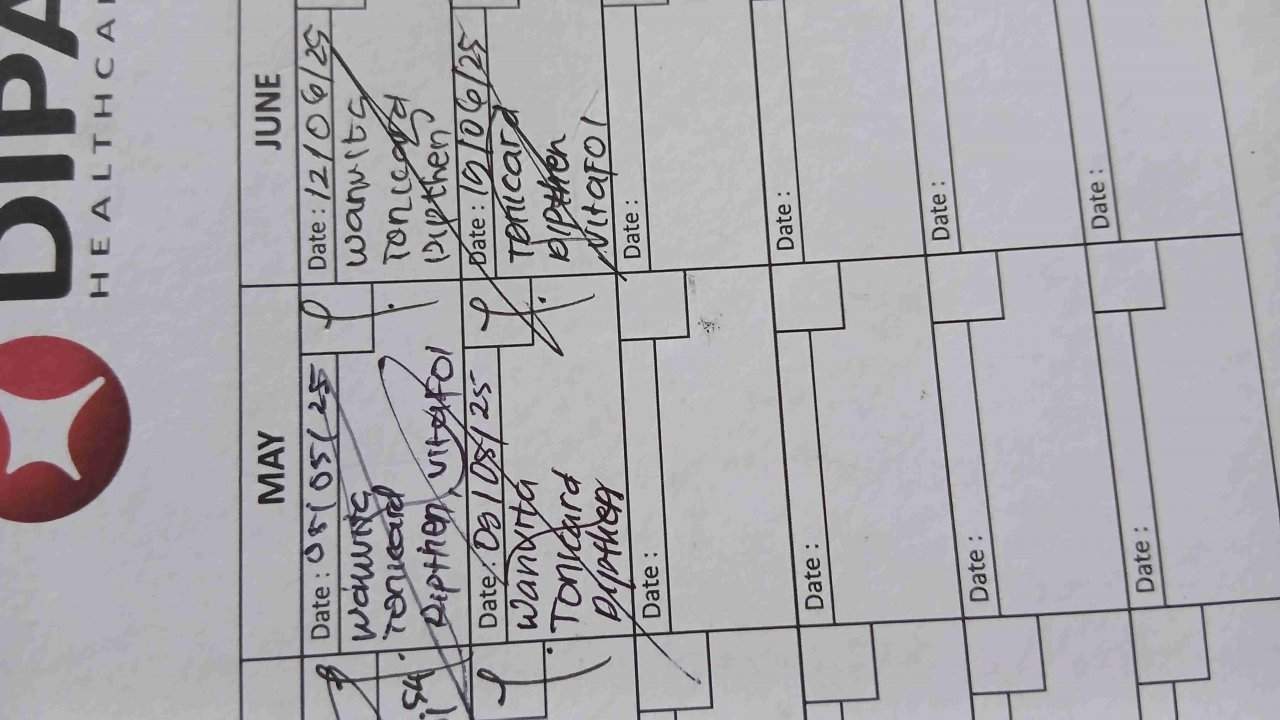 DIPA
HEALTHCAR
MAY
JUNE
Date : 05/05/25
Wanvita
Tonicard
Dipthen, Vitafol
Date : 12/06/25
Wanvita
Tonicard
Dipthen
Date : 09/05/25
Wanvita
Tonicard
Dipthen
Date : 19/06/25
Tonicard
Dipthen
Vitafol
Date :
Date :
Date :
Date :
Date :
Date :
Date :
Date :